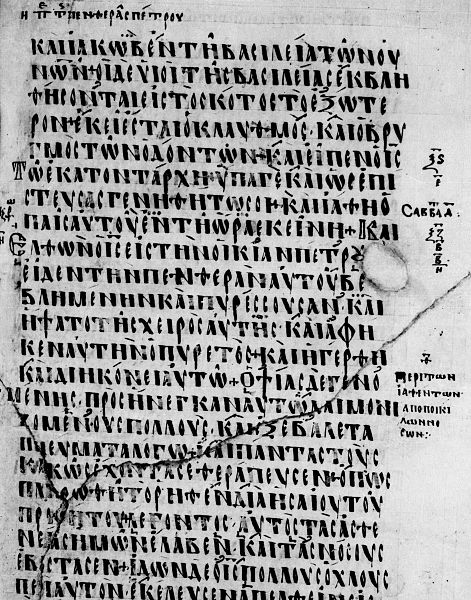 ΠΕΝΘΕΡΑϹ ΠΕΤΡΟΥ
ΚΑΙ ΙΑΚΩΒ ΕΝ ΤΗ ΒΑϹΙΛΕΙΑ ΤΩΝ ΟΥ
ΝΩΝ + ΟΙ ΔΕ ΥΙΟΙ ΤΗϹ ΒΑϹΙΛΕΙΑϹ ΕΚΒΛΗ
ΘΗϹΟΝΤΑΙ ΕΙϹ ΤΟ ϹΚΟΤΟϹ ΤΟ ΕΞΩΤΕ
ΡΟΝ ΕΚΕΙ ΕϹΤΑΙ Ο ΚΛΑΥΘΜΟϹ · ΚΑΙ Ο ΒΡΥ
ΓΜΟϹ ΤΩΝ ΟΔΟΝΤΩΝ + ΚΑΙ ΕΙΠΕΝ Ο ΙϹ
ΤΩ ΕΚΑΤΟΝΤΑΡΧΗ ΥΠΑΓΕ ΚΑΙ ΩϹ ΕΠΙ
ϹΤΕΥϹΑϹ ΓΕΝΗΘΗΤΩ ϹΟΙ + ΚΑΙ ΙΑΘΗ Ο
ΠΑΙϹ ΑΥΤΟΥ ΕΝ ΤΗ ΩΡΑ ΕΚΕΙΝΗ + ΚΑΙ
ϹΑΒΒΑ
ΕΛΘΩΝ Ο ΙϹ ΕΙϹ ΤΗΝ ΟΙΚΙΑΝ ΠΕΤΡΟΥ
ΕΙΔΕΝ ΤΗΝ ΠΕΝΘΕΡΑΝ ΑΥΤΟΥ ΒΕ
ΒΛΗΜΕΝΗΝ ΚΑΙ ΠΥΡΕϹϹΟΥϹΑΝ · ΚΑΙ
ΗΨΑΤΟ ΤΗϹ ΧΕΙΡΟϹ ΑΥΤΗϹ · ΚΑΙ ΑΦΗ
ΚΕΝ ΑΥΤΗΝ Ο ΠΥΡΕΤΟϹ + ΚΑΙ ΗΓΕΡΘΗ
ΚΑΙ ΔΙΗΚΟΝΕΙ ΑΥΤΩ + ΟΨΙΑϹ ΔΕ ΓΕΝΟ
ΜΕΝΗϹ · ΠΡΟϹΗΝΕΓΚΑΝ ΑΥΤΩ ΔΑΙΜΟΝΙ
ΠΕΡΙ ΤΩΝ
ΙΑΘΕΝΤΩΝ
ΑΠΟ ΠΟΙΚΙ
ΛΩΝ ΝΟ
ϹΩΝ
ΖΟΜΕΝΟΥϹ ΠΟΛΛΟΥϹ · ΚΑΙ ΕΞΕΒΑΛΕ ΤΑ
ΠΝΕΥΜΑΤΑ ΛΟΓΩ · ΚΑΙ ΠΑΝΤΑϹ ΤΟΥϹ
ΚΑΚΩϹ ΕΧΟΝΤΑϹ ΕΘΕΡΑΠΕΥϹΕΝ · ΟΠΩϹ
ΠΛΗΡΩΘΗ ΤΟ ΡΗΘΕΝ ΔΙΑ ΗϹΑΙΟΥ ΤΟΥ
ΠΡΟΦΗΤΟΥ ΛΕΓΟΝΤΟϹ · ΑΥΤΟϹ ΤΑϹ ΑϹΘΕ
ΝΕΑϹ ΗΜΩΝ ΕΛΑΒΕΝ · ΚΑΙ ΤΑϹ ΝΟϹΟΥϹ
ΕΒΑϹΤΑϹΕΝ + ΙΔΩΝ ΔΕ Ο ΙϹ ΠΟΛΛΟΥϹ ΟΧΛΟΥϹ
ΠΕΡΙ ΑΥΤΟΝ ΕΚΕΛΕΥϹΕΝ ΑΠΕΛΘΕΙΝ ΕΙϹ